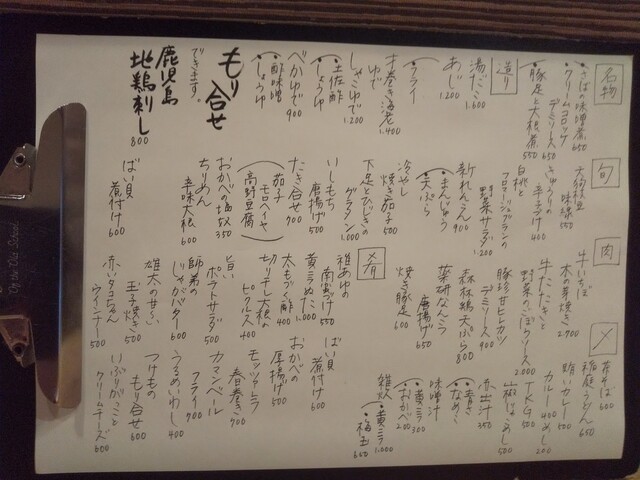 名物
・さばの味噌煮 650
・クリームコロッケ
デミソース 650
・豚足と大根煮 550
造り
湯だこ 1.600
あじ 1.200
フライ
才巻き海老 1.400
ゆで
しゃこゆで 1.200
・土佐酢
・しょうゆ
べかゆで 900
・酢味噌
・しょうゆ
もり合せ
できます。
鹿児島
地鶏刺し 800
旬
味噌 550
きゅうりの
辛子づけ 400
白桃と
フロマージュブランの
野菜サラダ 1.200
新れんこん 900
・まんじゅう
・天ぷら
冷やし
焼き茄子 500
下足とひじきの
グラタン 1.000
いしもち
唐揚げ 500
たき合せ 700
茄子
モロヘイヤ
高野豆腐
おかべの塩奴 350
ちりめん
辛味大根 600
ばい貝
煮付け 600
肉
牛いちぼ
木の芽焼き 2.700
牛たたきと
野菜のごぼうソース 2.000
豚珍甘ヒレカツ
デミソース 900
森林鶏天ぷら 800
薬研なんこつ
唐揚げ 650
焼き豚足 600
肴
稚あゆの
南蛮づけ 550
黄ニラぬた 1.000
太もづく酢 400
切り干し大根の
ピクルス 400
旨い
ポテトサラダ 500
師弟の
じゃがバター 600
雄太の甘〜い
玉子焼き 500
赤いタコちゃん
ウインナー 500
ばい貝
煮付け 600
おかべの
厚揚げ 500
モッツァレラ
春巻き 700
カマンベール
フライ 700
うるめいわし 400
つけもの
もり合せ 600
いぶりがっこと
クリームチーズ 600
〆
茶そば 600
稲庭うどん 650
賄いカレー 500
カル 400 めし 200
TKG 500
しらすめし 500
流出汁 350
・青さ
・なめこ
味噌汁
・黄ニラ 300
・おかべ 200
雑炊
・黄ニラ 1.000
・福玉 600
On the Old School